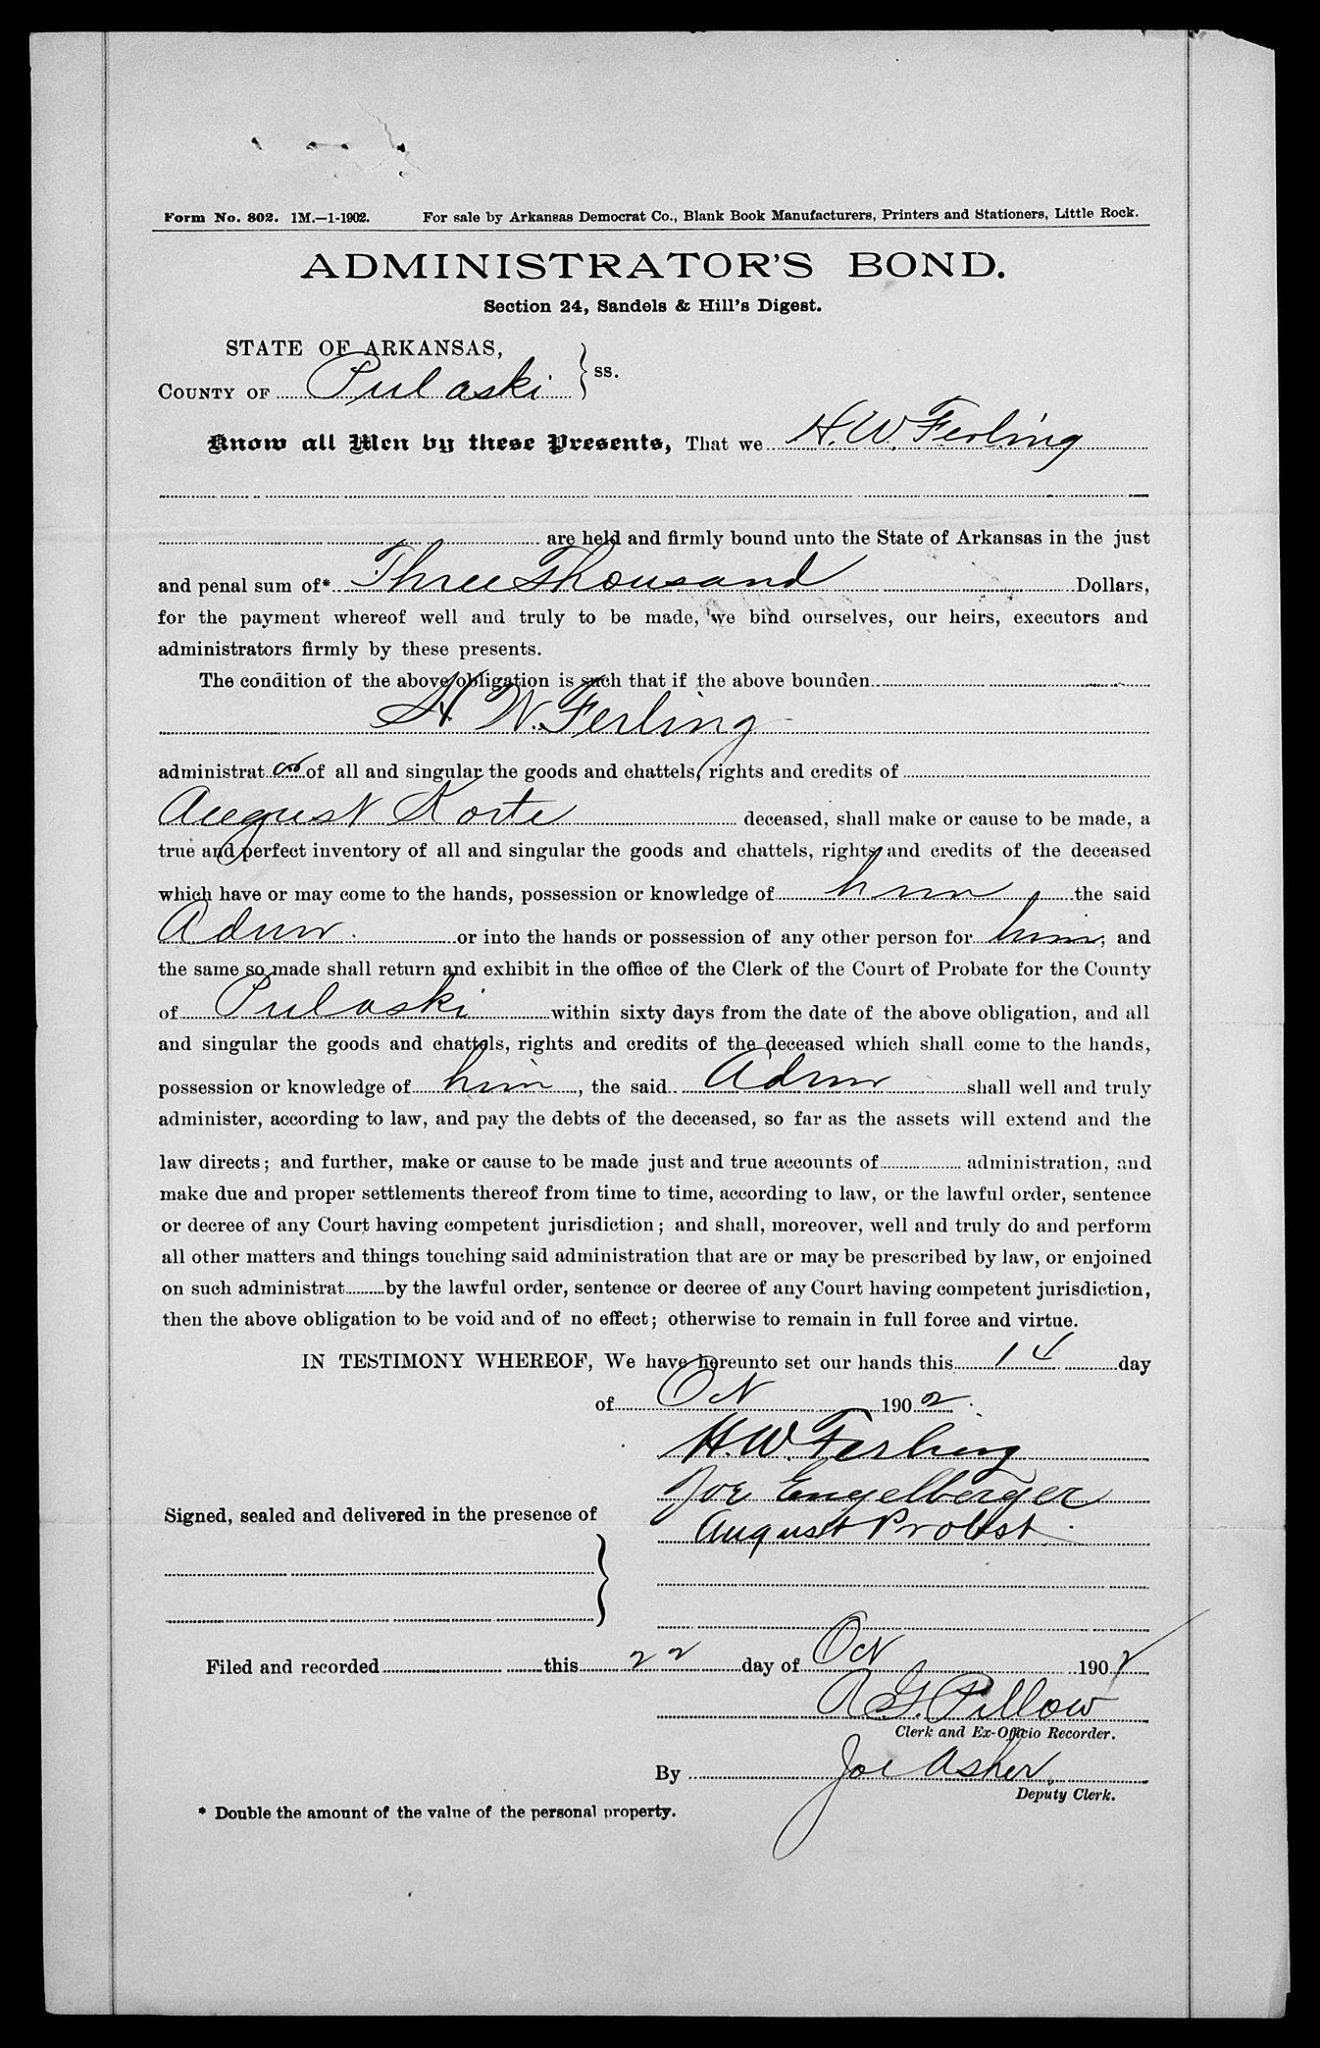 Form No. 802. 1M.—1-1902. For sale by Arkansas Democrat Co., Blank Book Manufacturers, Printers and Stationers, Little Rock.
ADMINISTRATOR'S BOND.
Section 24, Sandels & Hill's Digest.
STATE OF ARKANSAS,
COUNTY OF Pulaski } ss.
Know all Men by these Presents, That we H. W. Ferling
are held and firmly bound unto the State of Arkansas in the just
and penal sum of* Three Thousand Dollars,
for the payment whereof well and truly to be made, we bind ourselves, our heirs, executors and
administrators firmly by these presents.
The condition of the above obligation is such that if the above bounden
H. W. Ferling
administrat or of all and singular the goods and chattels, rights and credits of
August Korte deceased, shall make or cause to be made, a
true and perfect inventory of all and singular the goods and chattels, rights and credits of the deceased
which have or may come to the hands, possession or knowledge of him the said
Admr. or into the hands or possession of any other person for him; and
the same so made shall return and exhibit in the office of the Clerk of the Court of Probate for the County
of Pulaski within sixty days from the date of the above obligation, and all
and singular the goods and chattels, rights and credits of the deceased which shall come to the hands,
possession or knowledge of him, the said Admr shall well and truly
administer, according to law, and pay the debts of the deceased, so far as the assets will extend and the
law directs; and further, make or cause to be made just and true accounts of administration, and
make due and proper settlements thereof from time to time, according to law, or the lawful order, sentence
or decree of any Court having competent jurisdiction; and shall, moreover, well and truly do and perform
all other matters and things touching said administration that are or may be prescribed by law, or enjoined
on such administrat by the lawful order, sentence or decree of any Court having competent jurisdiction,
then the above obligation to be void and of no effect; otherwise to remain in full force and virtue.
IN TESTIMONY WHEREOF, We have hereunto set our hands this 14 day
of Oct 1902.
H. W. Ferling
Joe Engelberger
Signed, sealed and delivered in the presence of
August Probst.
Filed and recorded this 22 day of Oct 1902
A. G. Pillow
Clerk and Ex-Officio Recorder.
By Joe Asher,
Deputy Clerk.
* Double the amount of the value of the personal property.